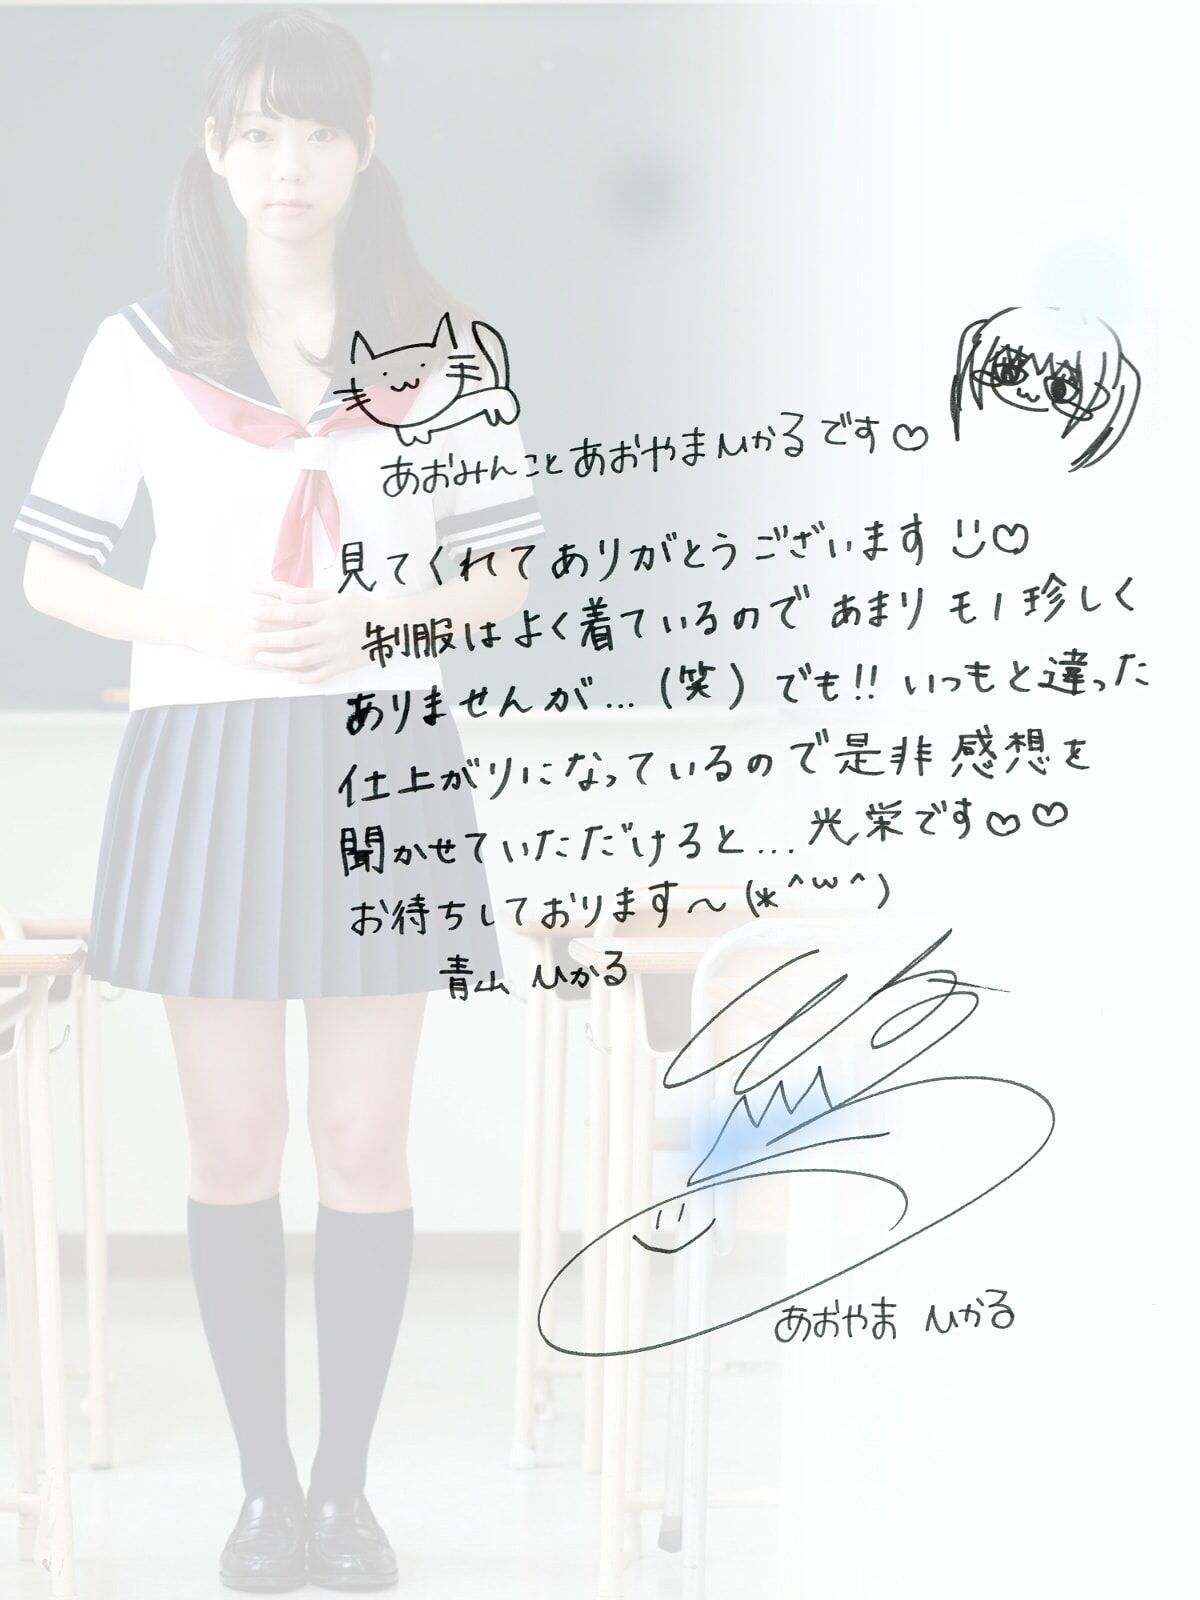 あおみんことあおやまひかるです♡
見てくれてありがとうございます♡
制服はよく着ているのであまりモノ珍しく
ありませんが…(笑)でも!!いつもと違った
仕上がりになっているので是非感想を
聞かせていただけると…光栄です♡♡
お待ちしております〜(*^w^)
青山ひかる
あおやまひかる